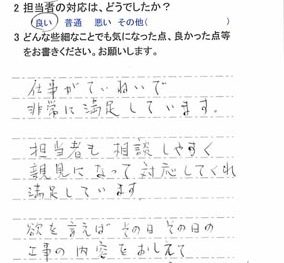 2 担当者の対応は、どうでしたか？
良い 普通 悪い その他(
3 どんな些細なことでも気になった点、良かった点等
をお書きください。お願いします。
仕事がていねいで
非常に満足しています.
担当者も相談しやすく
親見になって対応してくれ
満足しています
欲を言えばその日その日の
工事の内容をおしえて